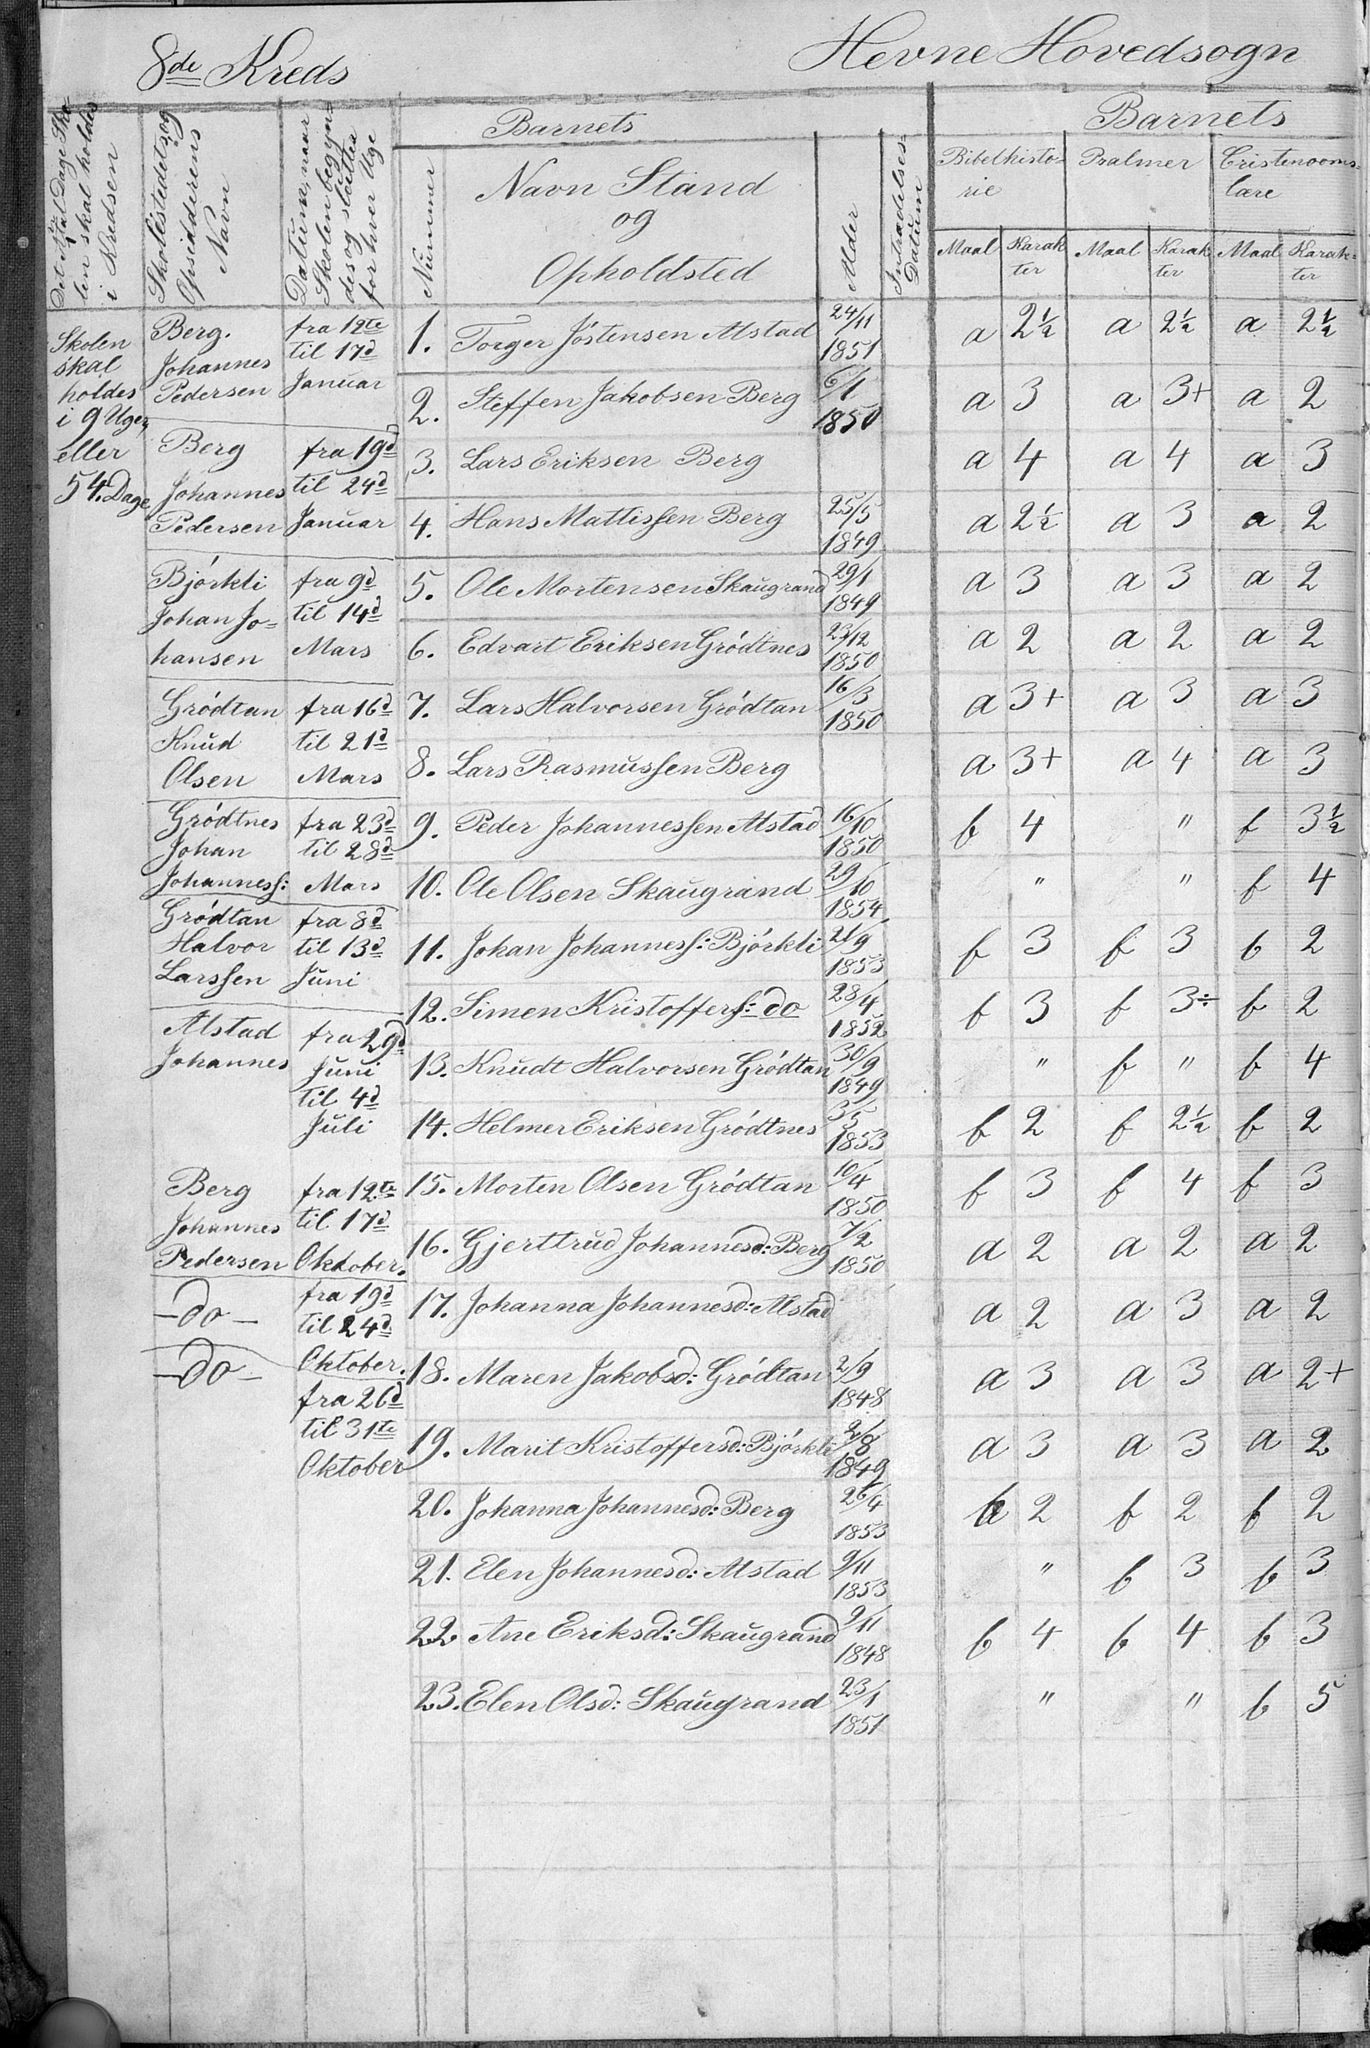 8de Kreds
Hevne Hovedsogn
Det Antal Dage Sko-
len skal holdes
i Kredsen
Skolestedets og
Opsidderens
Navn
Datum, naar
Skolen begyn-
des og sluttes
for hver Uge
Barnets
Nummer
Navn Stand
og
Opholdsted
Alder
Indtrædelses-
Datum
Barnets
Bibelhisto-
rie
Psalmer
Cristendoms-
lære
Maal Karak
ter
Maal Karak
ter
Maal Karak-
ter
Skolen
skal
holdes
i 9 Uger,
eller
54. Dage
Berg.
Johannes
Pedersen
fra 12te
til 17d
Januar
Berg
Johannes
Pedersen
fra 19d
til 24d
Januar
Bjórkli
Johan Jo-
hansen
fra 9d
til 14d
Mars
Gródtan
Knud
Olsen
fra 16d
til 21d
Mars
Gródtnes
Johan
Johanness:
fra 23d
til 28d
Mars
Gródtan
Halvor
Larssen
fra 8d
til 13d
Juni
Alstad
Johannes
fra 29d
Juni
til 4d
Juli
Berg
Johannes
Pedersen
fra 12te
til 17d
Oktober.
-do-
fra 19d
til 24d
Oktober.
-do-
fra 26d
til 31te
Oktober
1. Torger Jóstensen Alstad 24/11 1851 a 2½ a 2½ a 2½
2. Steffen Jakobsen Berg 6/1 1850 a 3 a 3+ a 2
3. Lars Eriksen Berg a 4 a 4 a 3
4. Hans Mattissen Berg 25/5 1849 a 2½ a 3 a 2
5. Ole Mortensen Skaugrand 29/1 1849 a 3 a 3 a 2
6. Edvart Eriksen Gródtnes 23/12 1850 a 2 a 2 a 2
7. Lars Halvorsen Gródtan 16/3 1850 a 3+ a 3 a 3
8. Lars Rasmussen Berg a 3+ a 4 a 3
9. Peder Johannessen Alstad 16/10 1850 b 4 " b 3½
10. Ole Olsen Skaugrand 29/10 1854 " " b 4
11. Johan Johanness: Bjórkli 21/9 1853 b 3 b 3 b 2
12. Simen Kristoffers: do 28/4 1852 b 3 b 3÷ b 2
13. Knudt Halvorsen Gródtan 30/9 1849 " b " b 4
14. Helmer Eriksen Gródtnes 3/5 1853 b 2 b 2½ b 2
15. Morten Olsen Gródtan 10/4 1850 b 3 b 4 b 3
16. Gjerttrud Johannesd: Berg 7/2 1850 a 2 a 2 a 2
17. Johanna Johannesd: Alstad a 2 a 3 a 2
18. Maren Jakobsd: Gródtan 2/9 1848 a 3 a 3 a 2+
19. Marit Kristoffersd: Bjórkli 2/8 1849 a 3 a 3 a 2
20. Johanna Johannesd: Berg 26/4 1853 b 2 b 2 b 2
21. Elen Johannesd: Alstad 9/11 1853 " b 3 b 3
22 Ane Eriksd: Skaugrand 9/11 1848 b 4 b 4 b 3
23. Elen Olsd: Skaugrand 23/1 1851 " " b 5